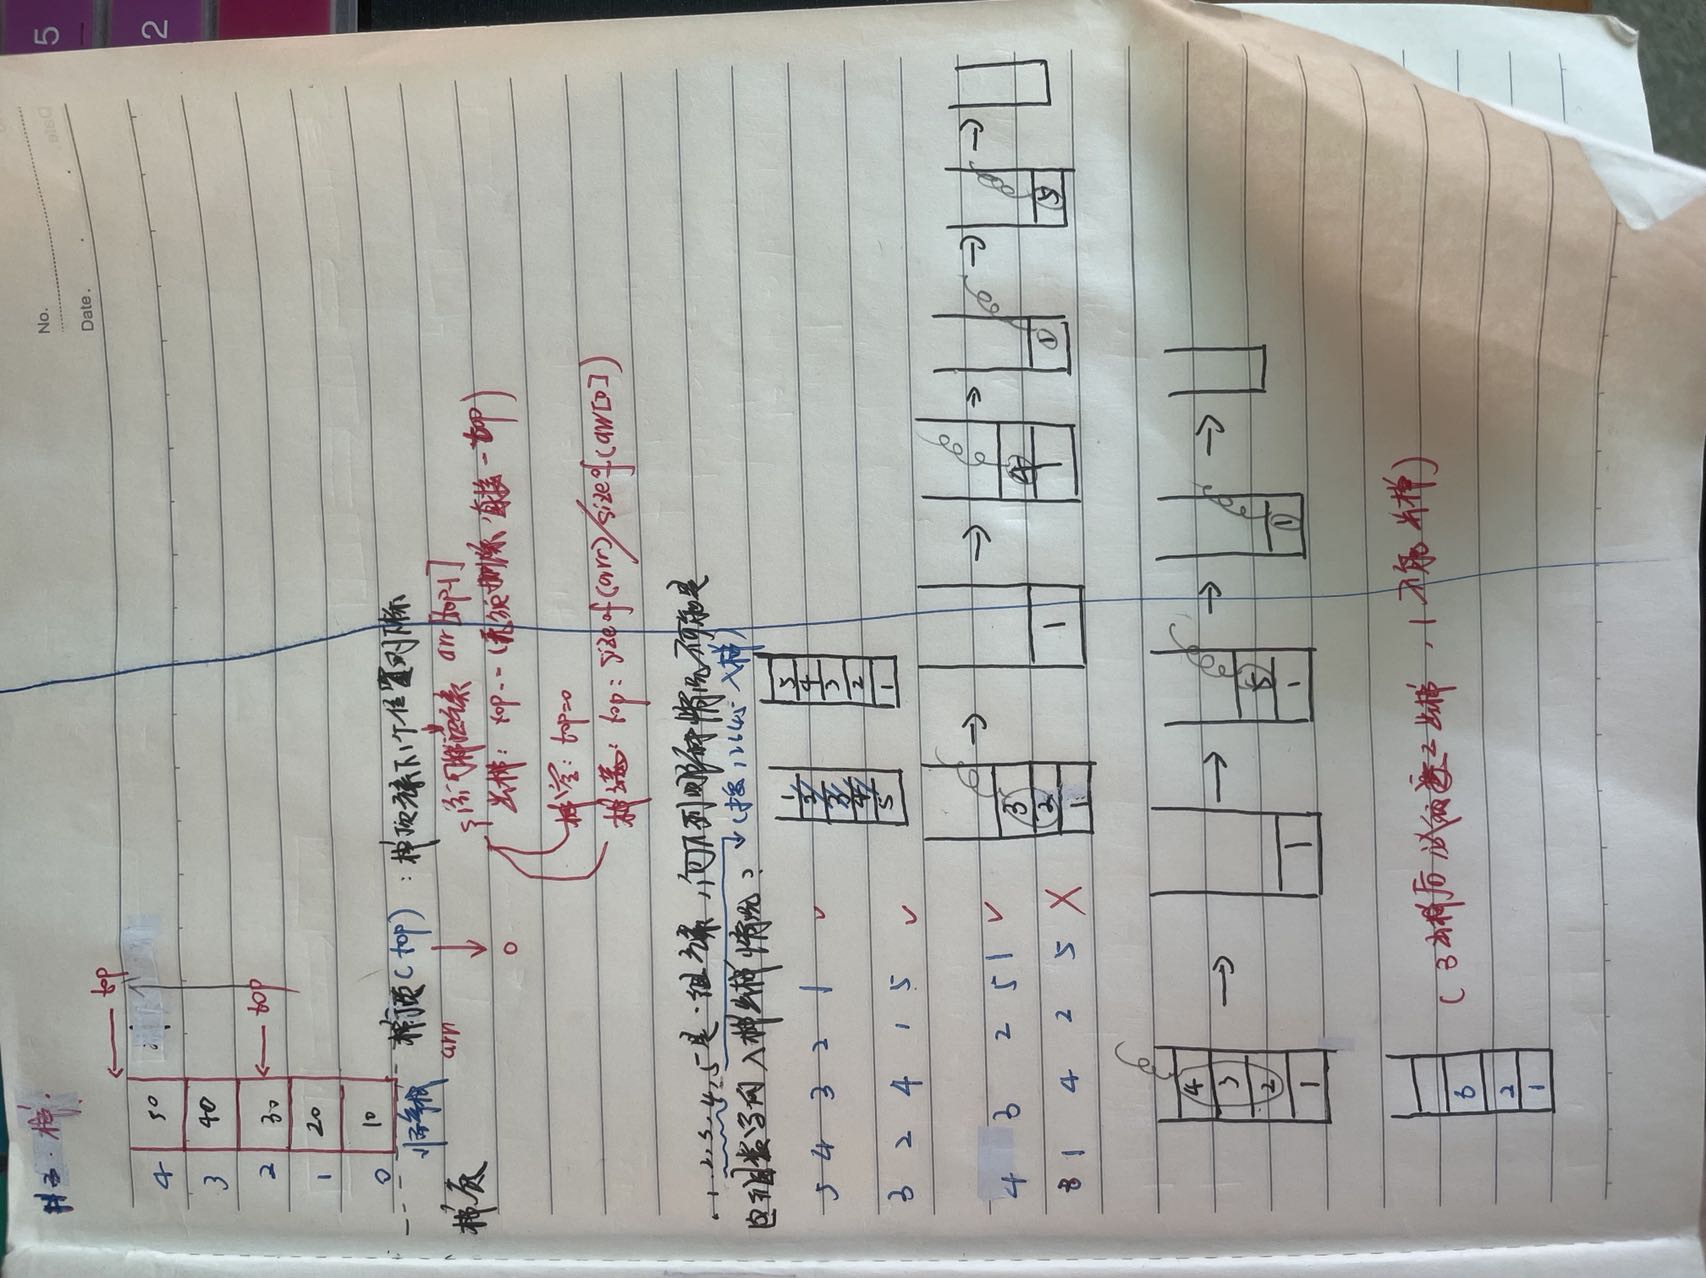 #3. 栈.
No.
Date.
5
2
← top
4 50
3 40
2 30 ← top
1 20
0 10
顺序栈
栈顶(top):栈顶元素下1个位置的下标
arr
栈底
0
访问栈顶元素 arr[top-1]
出栈: top-- (无须删除,直接-top)
栈空: top=0
栈满: top: sizeof(arr)/sizeof(arr[0])
1.2.3.4.5是一组元素,问下列哪种情况不可能是
这组数字的入栈出栈情况? ↓(按12345入栈)
5 4 3 2 1 ✓
1 2 3 4 5
5 4 3 2 1
3 2 4 1 5 ✓
3 2 1 → 1 → 4 1 → 1 → 5 →
4 3 2 5 1 ✓
3 1 4 2 5 ×
4 3 2 1 → 1 → 5 1 → 1 →
3 2 1
(3出栈后必须要2出栈,1不能出栈)